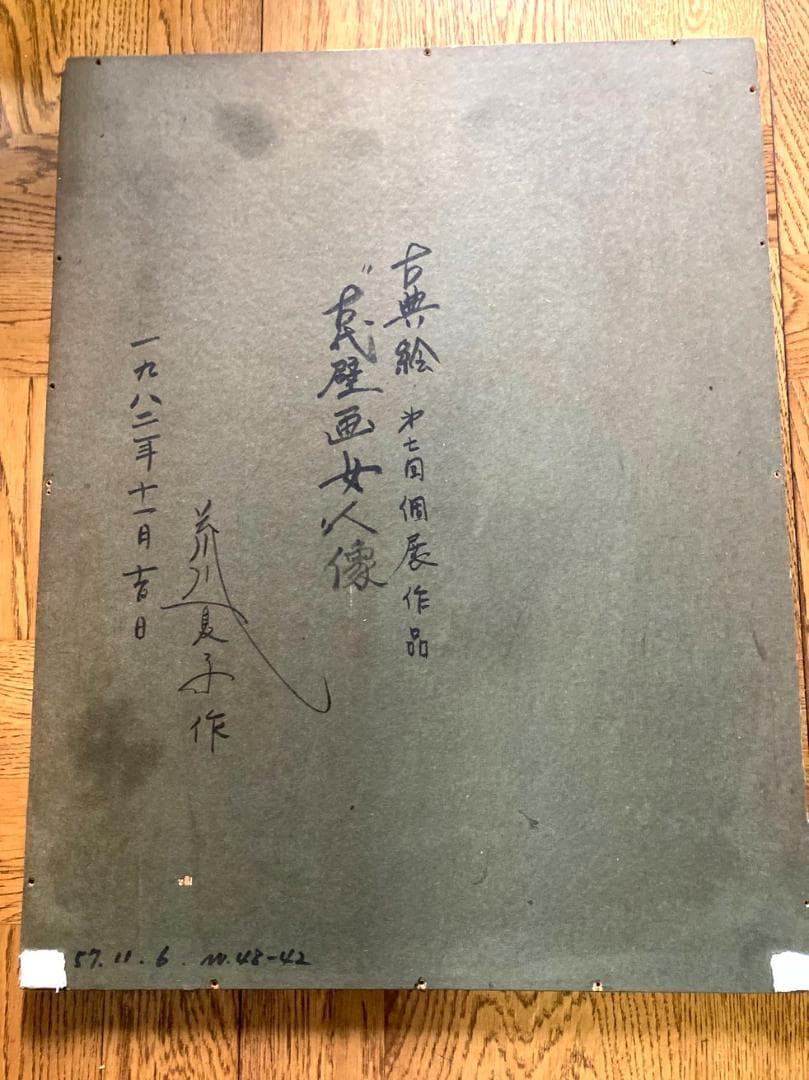 古典絵 第七回個展作品
"古代壁画女人像"
荒川夏子作
一九八二年十一月吉日
57.11.6. N.48-42